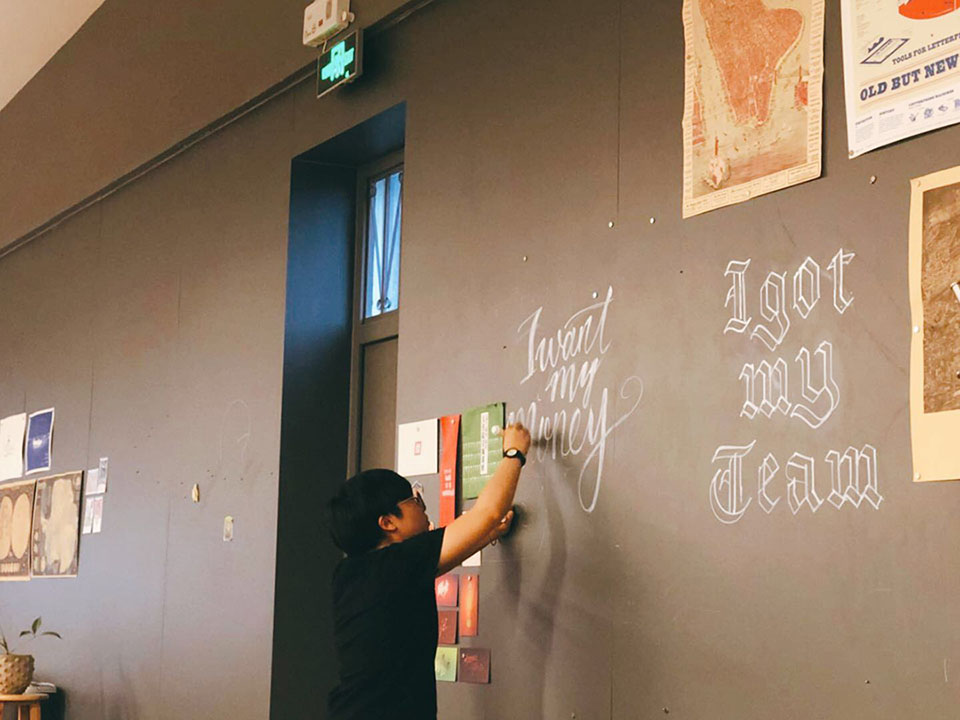 I want
my
money
I got
my
Team
TOOLS FOR LETTERP
OLD BUT NEW